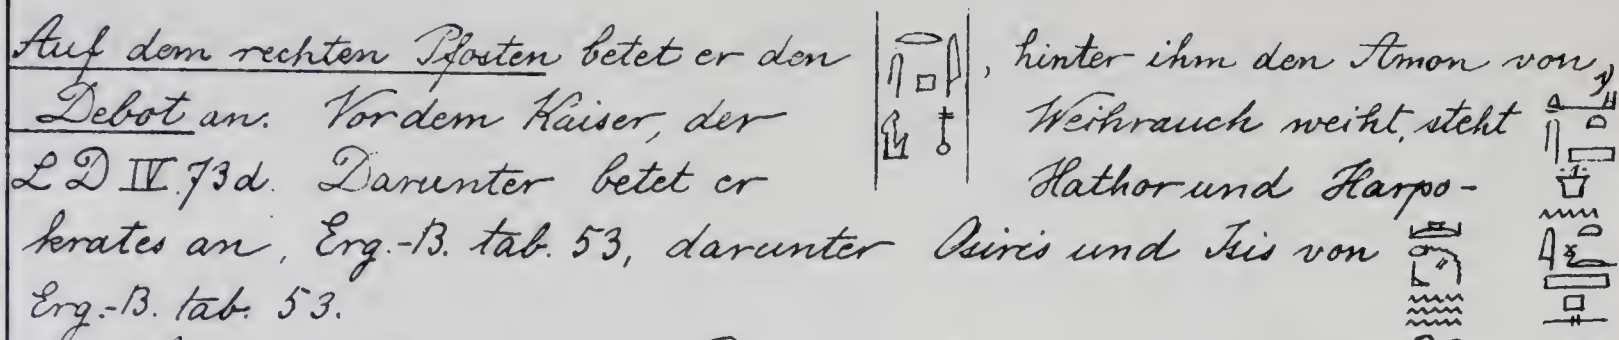 Auf dem rechten Pfosten betet er den , hinter ihm den Amon von
Debot an. Vor dem Kaiser, der Weihrauch weiht, steht
LD IV.73d. Darunter betet er Hathor und Harpo-
krates an, Erg.-B. tab. 53, darunter Osiris und Isis von
Erg.-B. tab. 53.